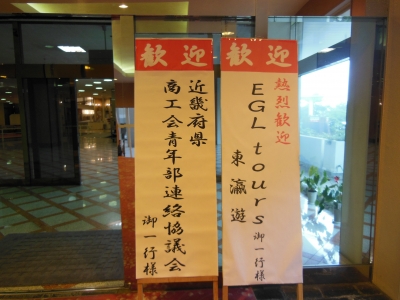 歡迎
近畿府県
商工会青年部連絡協議会
御一行様
歡迎
熱烈歡迎
EGL tours 御一行様
東瀛遊